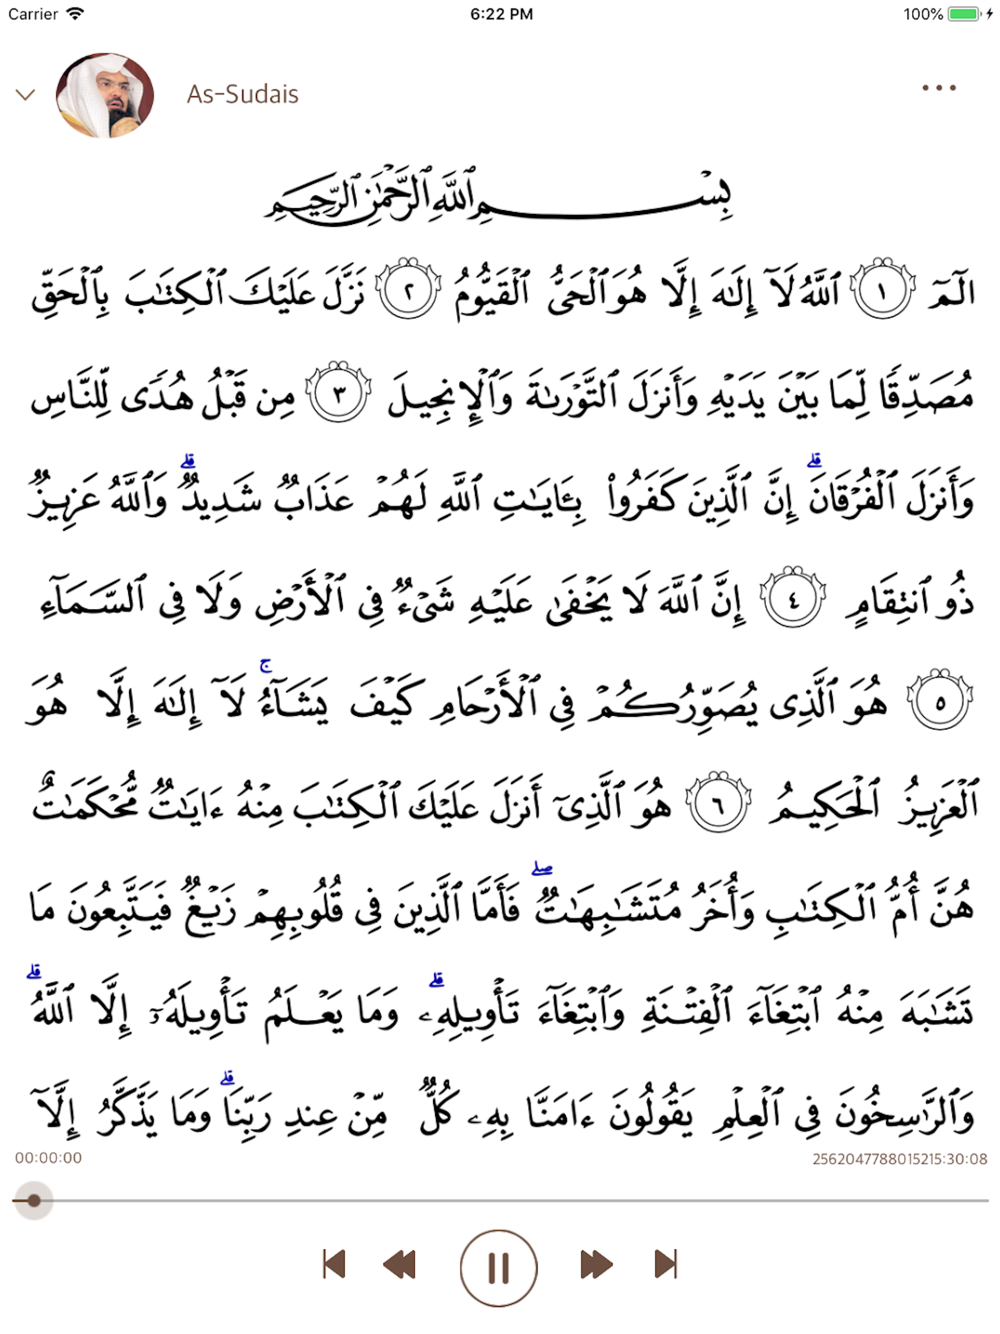 Carrier 6:22 PM 100%
As-Sudais
بِسْمِ ٱللَّهِ ٱلرَّحْمَٰنِ ٱلرَّحِيمِ
الٓمٓ ١ ٱللَّهُ لَآ إِلَٰهَ إِلَّا هُوَ ٱلْحَىُّ ٱلْقَيُّومُ ٢ نَزَّلَ عَلَيْكَ ٱلْكِتَٰبَ بِٱلْحَقِّ
مُصَدِّقًا لِّمَا بَيْنَ يَدَيْهِ وَأَنزَلَ ٱلتَّوْرَىٰةَ وَٱلْإِنجِيلَ ٣ مِن قَبْلُ هُدًى لِّلنَّاسِ
وَأَنزَلَ ٱلْفُرْقَانَ ۗ إِنَّ ٱلَّذِينَ كَفَرُوا۟ بِـَٔايَٰتِ ٱللَّهِ لَهُمْ عَذَابٌ شَدِيدٌ ۗ وَٱللَّهُ عَزِيزٌ
ذُو ٱنتِقَامٍ ٤ إِنَّ ٱللَّهَ لَا يَخْفَىٰ عَلَيْهِ شَىْءٌ فِى ٱلْأَرْضِ وَلَا فِى ٱلسَّمَآءِ
٥ هُوَ ٱلَّذِى يُصَوِّرُكُمْ فِى ٱلْأَرْحَامِ كَيْفَ يَشَآءُ ۚ لَآ إِلَٰهَ إِلَّا هُوَ
ٱلْعَزِيزُ ٱلْحَكِيمُ ٦ هُوَ ٱلَّذِىٓ أَنزَلَ عَلَيْكَ ٱلْكِتَٰبَ مِنْهُ ءَايَٰتٌ مُّحْكَمَٰتٌ
هُنَّ أُمُّ ٱلْكِتَٰبِ وَأُخَرُ مُتَشَٰبِهَٰتٌ ۖ فَأَمَّا ٱلَّذِينَ فِى قُلُوبِهِمْ زَيْغٌ فَيَتَّبِعُونَ مَا
تَشَٰبَهَ مِنْهُ ٱبْتِغَآءَ ٱلْفِتْنَةِ وَٱبْتِغَآءَ تَأْوِيلِهِۦ ۗ وَمَا يَعْلَمُ تَأْوِيلَهُۥٓ إِلَّا ٱللَّهُ ۗ
وَٱلرَّٰسِخُونَ فِى ٱلْعِلْمِ يَقُولُونَ ءَامَنَّا بِهِۦ كُلٌّ مِّنْ عِندِ رَبِّنَا ۗ وَمَا يَذَّكَّرُ إِلَّآ
00:00:00 2562047788015215:30:08